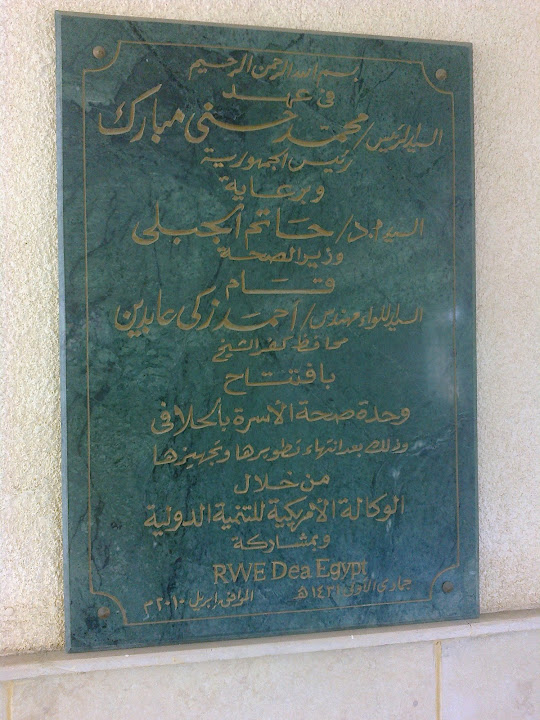 بسم الله الرحمن الرحيم
في عهد
السيد الرئيس / محمد حسني مبارك
رئيس الجمهورية
وبرعاية
السيد ا.د/ حاتم الجبلى
وزير الصحة
قام
السيد اللواء مهندس / أحمد زكى عابدين
محافظ كفر الشيخ
بافتتاح
وحدة صحة الأسرة بالحلافى
وذلك بعد انتهاء تطويرها وتجهيزها
من خلال
الوكالة الأمريكية للتنمية الدولية
وبمشاركة
RWE Dea Egypt
جمادى الأول ١٤٣١ هـ الموافق ابريل ٢٠١٠ م